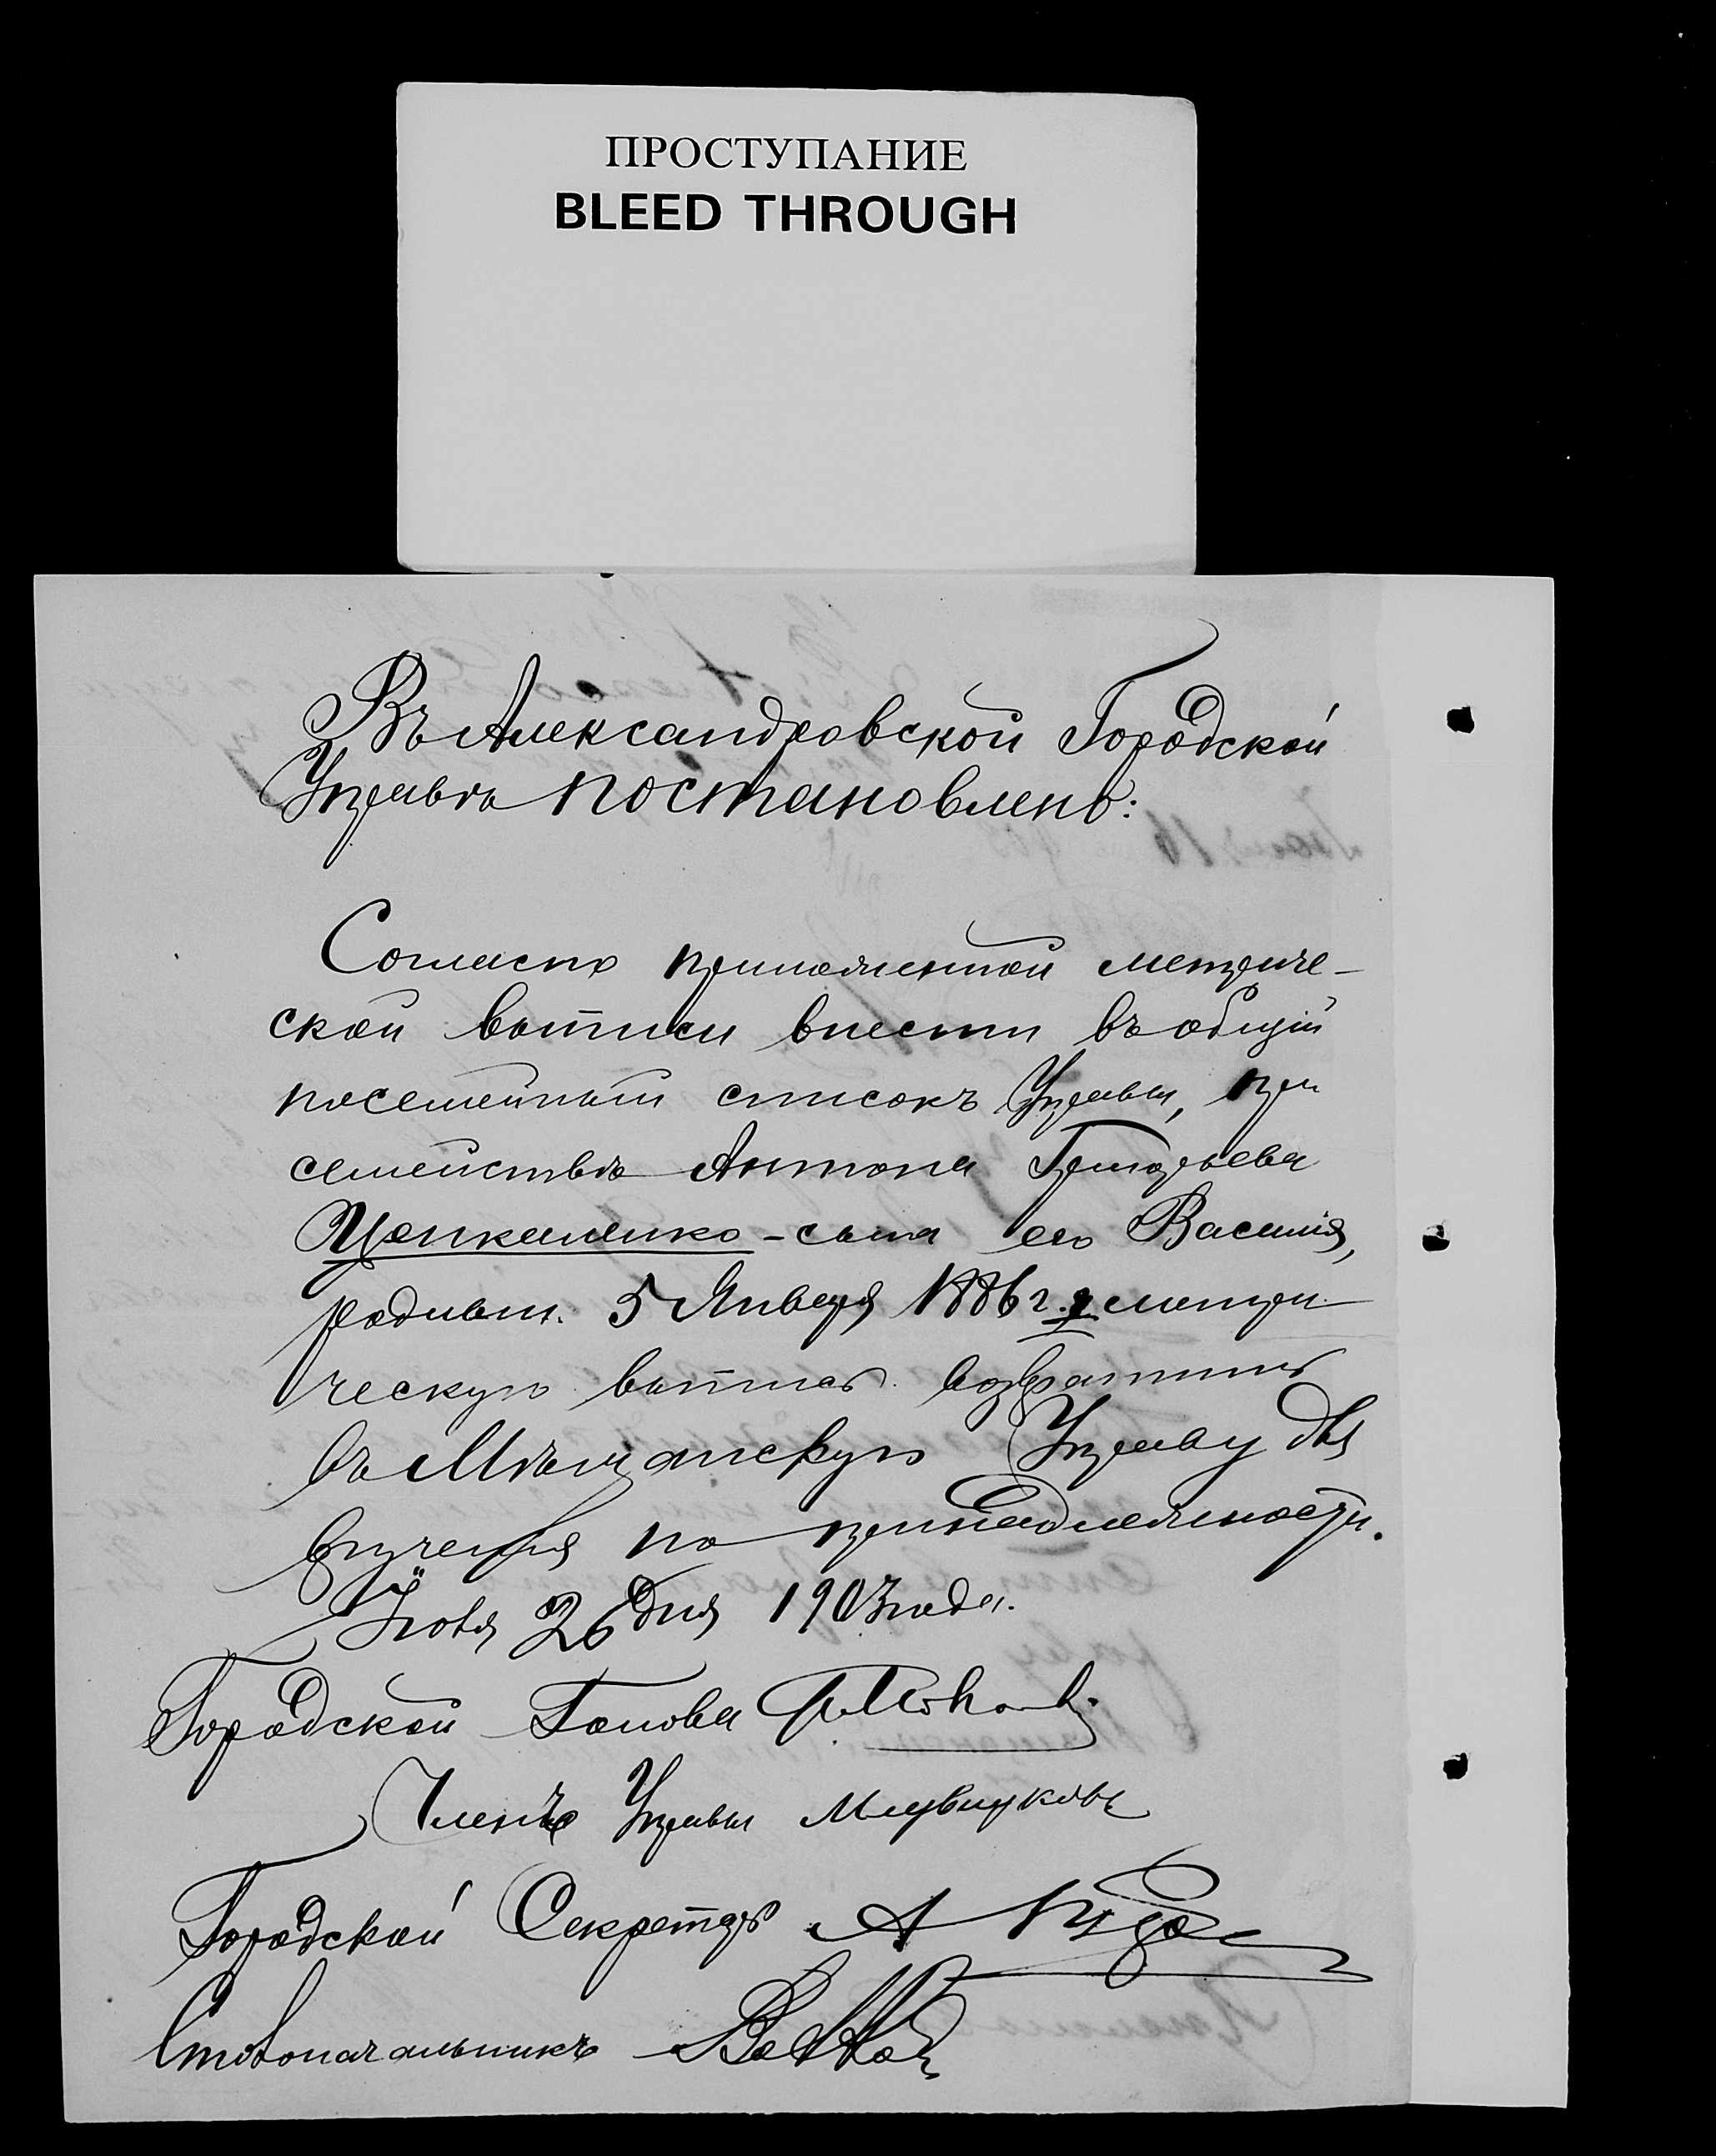 ПРОСТУПАНИЕ
BLEED THROUGH
Въ Александровской Городской
Управѣ постановлено:
Согласно приложенной метриче-
ской выписи внести въ общій
посемейный списокъ Управы, при
семействѣ Антона Григорьева
сына его Василія,
родивш. 5 Января 1886 г. метри
ческую выпись возвратить
въ Мѣщанскую Управу для
врученія по принадлежности.
26 дня 1903 года.
Городской Голова
Членъ Управы
Городской Секретарь А
Столоначальникъ